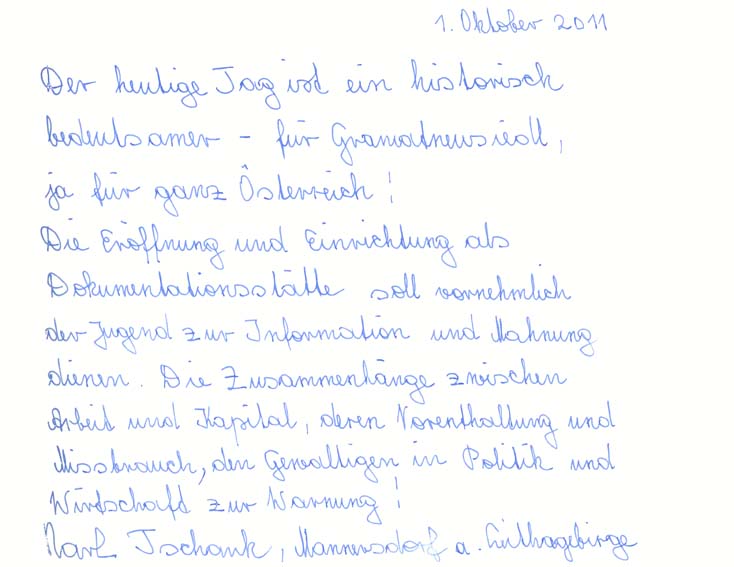 1. Oktober 2011
Der heutige Tag ist ein historisch
bedeutsamer - für Gramatneusiedl,
ja für ganz Österreich!
Die Eröffnung und Einrichtung als
Dokumentationsstätte soll vornehmlich
der Jugend zur Information und Mahnung
dienen. Die Zusammenhänge zwischen
Arbeit und Kapital, deren Vorenthaltung und
Missbrauch, den Gewaltigen in Politik und
Wirtschaft zur Warnung!
Karl Tschank, Mannersdorf a. Leithagebirge